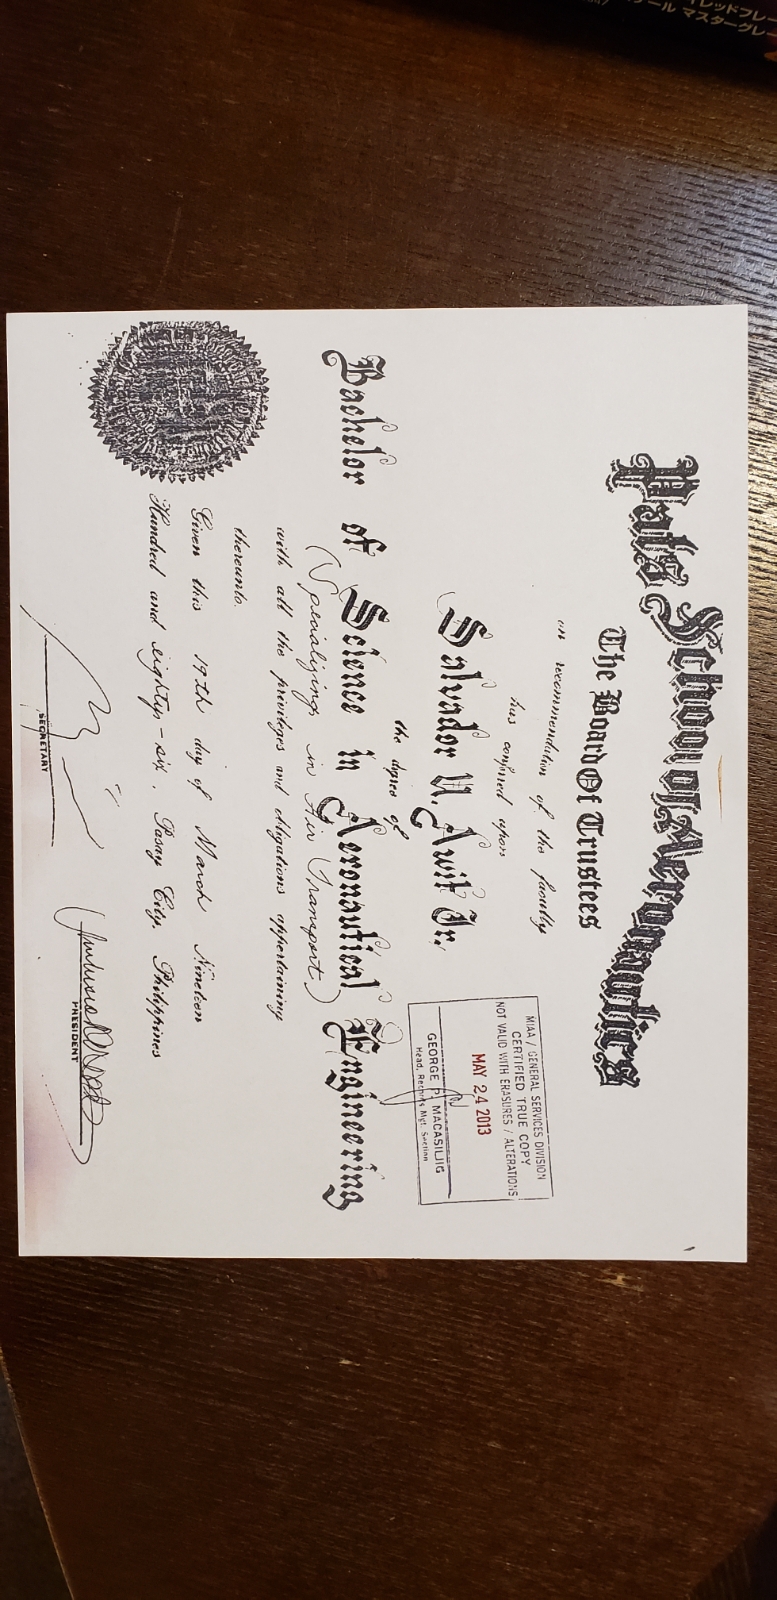 Pats School of Aeronautics
The Board Of Trustees
on recommendation of the faculty
has conferred upon
Salvador U. Awit Jr.
the degree of
Bachelor of Science in Aeronautical Engineering
(Specializing in Air Transport)
with all the privileges and obligations appertaining
thereunto.
Given this 19th day of March Nineteen
Hundred and eighty-six, Pasay City, Philippines
SECRETARY
PRESIDENT
MIAA / GENERAL SERVICES DIVISION
CERTIFIED TRUE COPY
NOT VALID WITH ERASURES / ALTERATIONS
MAY 24 2013
GEORGE P. MACASILJIG
Head, Records Mgt. Section
マスターグレー